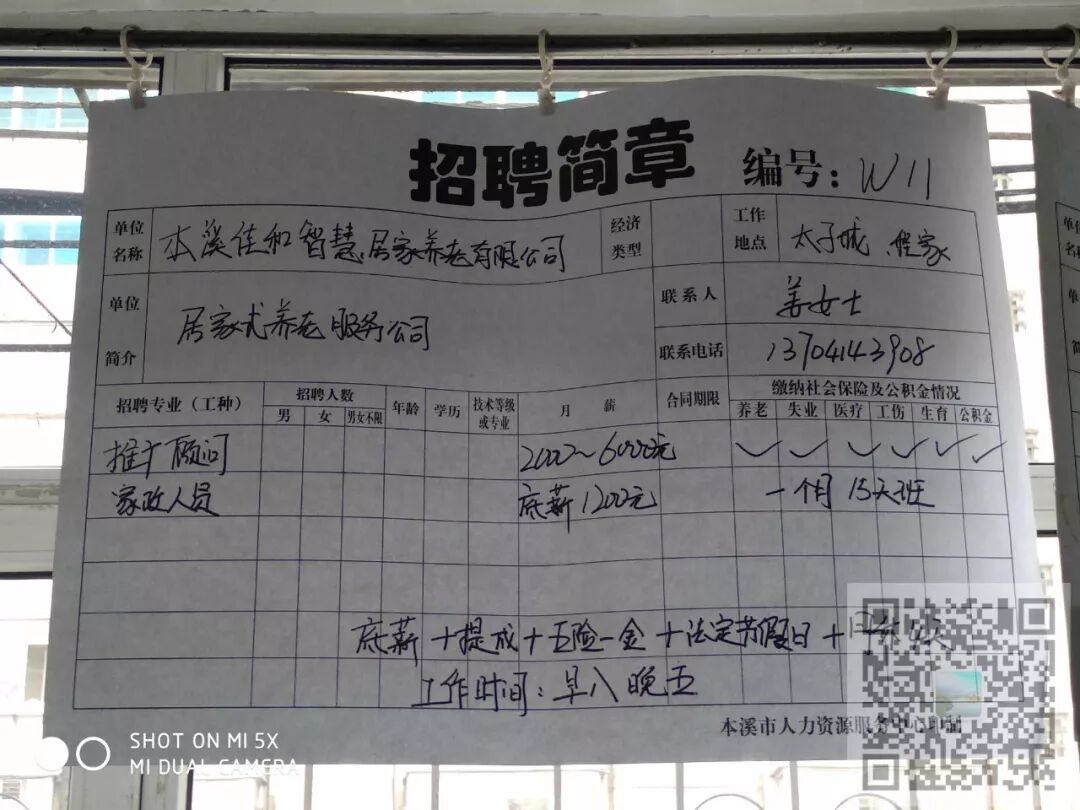 招聘简章 编号: W11
单位名称 本溪佳和智慧居家养老有限公司 经济类型 工作地点 太子城、程家
单位简介 居家式养老服务公司 联系人 姜女士
联系电话 13704143908
招聘专业（工种） 招聘人数 年龄 学历 技术等级或专业 月薪 合同期限 缴纳社会保险及公积金情况
男 女 男女不限 养老 失业 医疗 工伤 生育 公积金
推广顾问 2000~6000元 ✓ ✓ ✓ ✓ ✓ ✓
家政人员 底薪1200元 一个月15天班
底薪+提成+五险一金+法定节假日+
工作时间：早八晚五
本溪市人力资源服务中心印制
SHOT ON MI 5X
MI DUAL CAMERA
单位